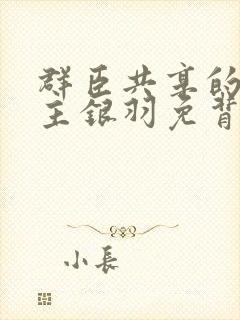 群臣共享的
主银羽免背
小長